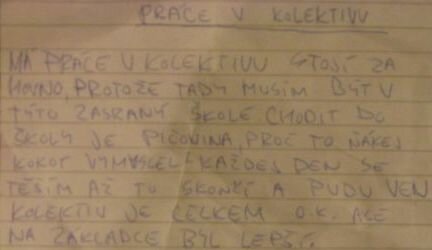 PRÁCE V KOLEKTIVU
MÁ PRÁCE V KOLEKTIVU STOJÍ ZA
HOVNO, PROTOŽE TADY MUSÍM BÝT V
TÝTO ZASRANÝ ŠKOLE. CHODIT DO
ŠKOLY JE PIČOVINA, PROČ TO ŇÁKEJ
KOKOT VYMYSLEL KAŽDEJ DEN SE
TĚŠÍM AŽ TO SKONČÍ A PUDU VEN
KOLEKTIV JE CELKEM O.K. ALE
NA ZAKLADCE BYL LEPŠÍ.